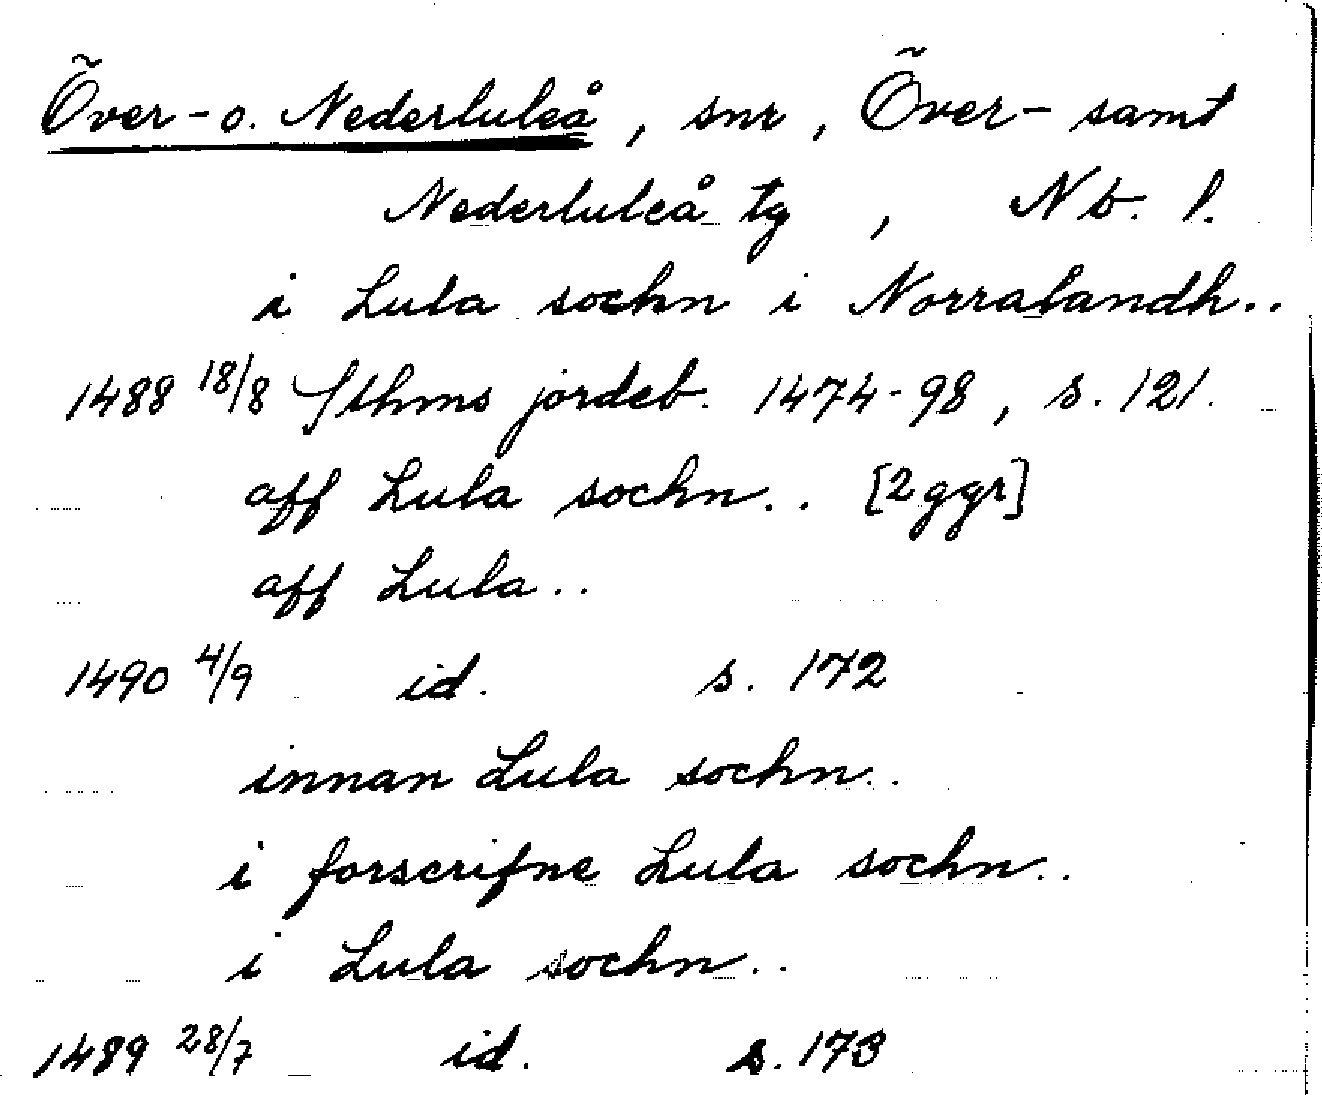 Över- o. Nederluleå, snr, Över- samt
Nederluleå tg, Nb. l.
i Lula sochn i Norralandh..
1488 18/8 Sthms jordeb. 1474-98, s. 121.
aff Lula sochn.. [2 ggr]
aff Lula..
1490 4/9 id. s. 172
innan Lula sochn..
i forscrifne Lula sochn..
i Lula sochn..
1489 28/7 id. s. 173